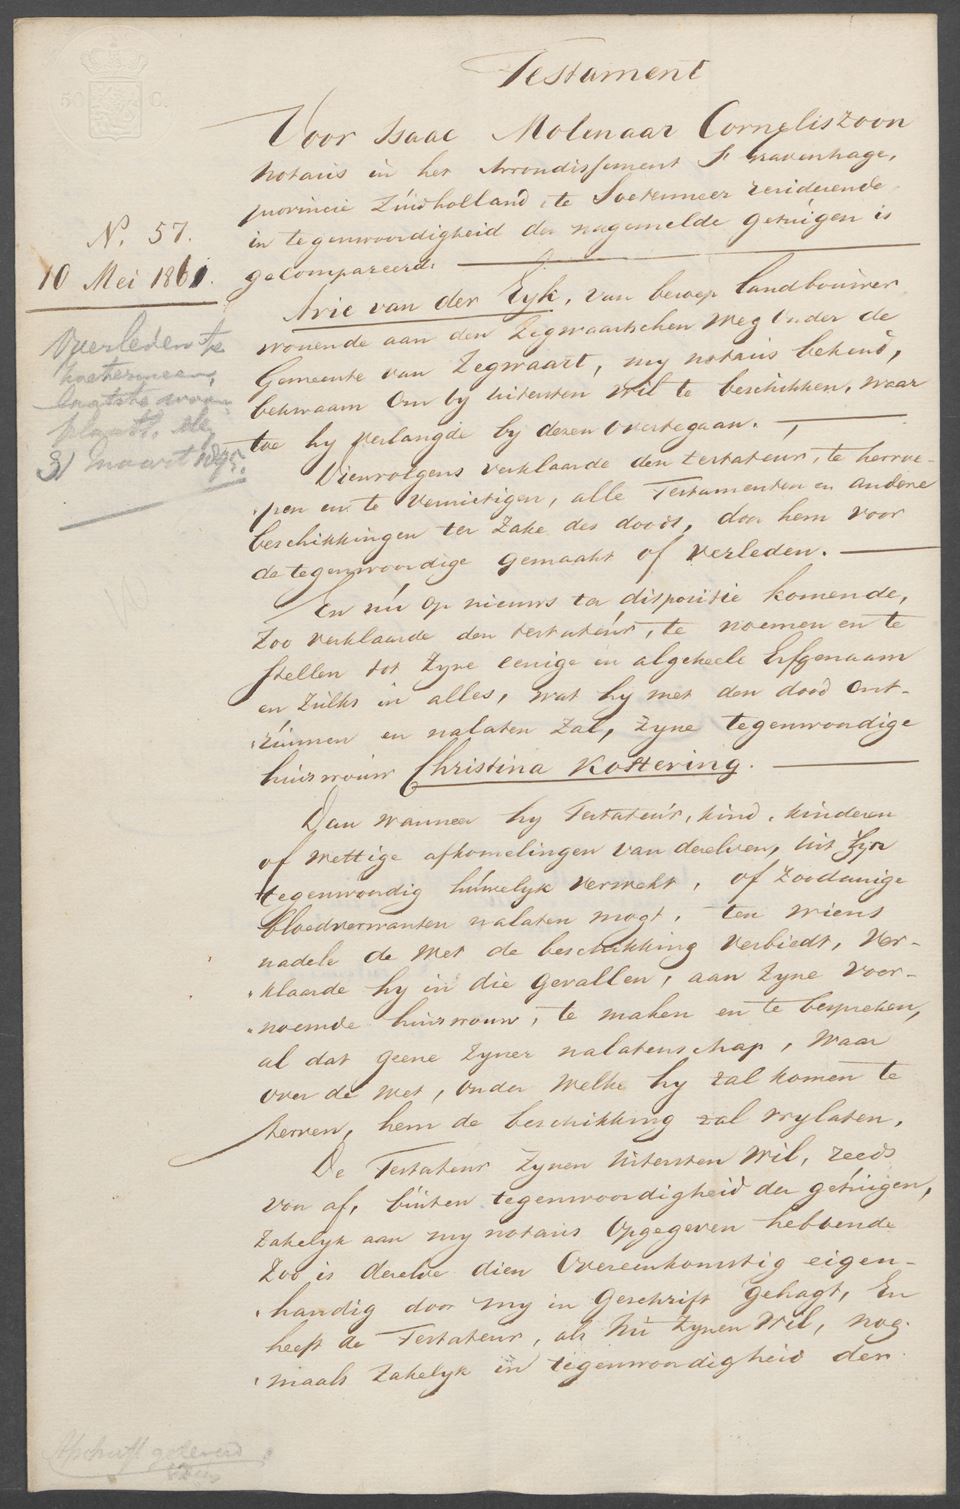 Testament
50 C.
Voor Isaac Molenaar Corneliszoon
notaris in het Arrondissement S Gravenhage,
provincie Zuidholland, te Soetermeer residerende,
in tegenwoordigheid der nagemelde getuigen is
gecompareerd.
N. 57.
10 Mei 1861.
Overleden te
Zoetermeer,
laatste woon
plaats. den
31 maart 1895.
Arie van der Eyk, van beroep landbouwer
wonende aan den Zegwaartschen weg onder de
Gemeente van Zegwaart, my notaris bekend,
bekwaam om by uitersten wil te beschikken, waar
toe hy verlangde by dezen overtegaan.
Dienvolgens verklaarde den testateur, te herroe-
pen en te vernietigen, alle Testamenten en andere
beschikkingen ter zake des doods, door hem voor
de tegenwoordige gemaakt of verleden.
En nú op nieuws ter dispositie komende,
Zoo verklaarde den testateúr, te noemen en te
stellen tot zyne eenige en algeheele Erfgenaam
en zulks in alles, wat hy met den dood ont-
ruimen en nalaten zal, zyne tegenwoordige
huisvrouw Christina Kostering.
Dan wanneer hy Testateúr, kind, kinderen
of wettige afkomelingen van dezelven, uit zyn
tegenwoordig húwelyk verwekt, of zoodanige
bloedverwanten nalaten mogt, ten wiens
nadele de wet de beschikking verbiedt, ver-
klaarde hy in die gevallen, aan zyne voor-
noemde huisvrouw, te maken en te bespreken,
al dat geene zyner nalatenschap, waar
over de wet, onder welke hy zal komen te
sterven, hem de beschikking zal vrylaten.
De Testateur zynen uitersten wil, reeds
von af, buiten tegenwoordigheid der getuigen,
zakelyk aan my notaris opgegeven hebbende
Zoo is dezelve dien overeenkomstig eigen-
handig door my in geschrift gebragt, En
heeft de Testateur, als nú zynen wil, nog-
maals zakelyk in tegenwoordigheid der
Afschrift geleverd